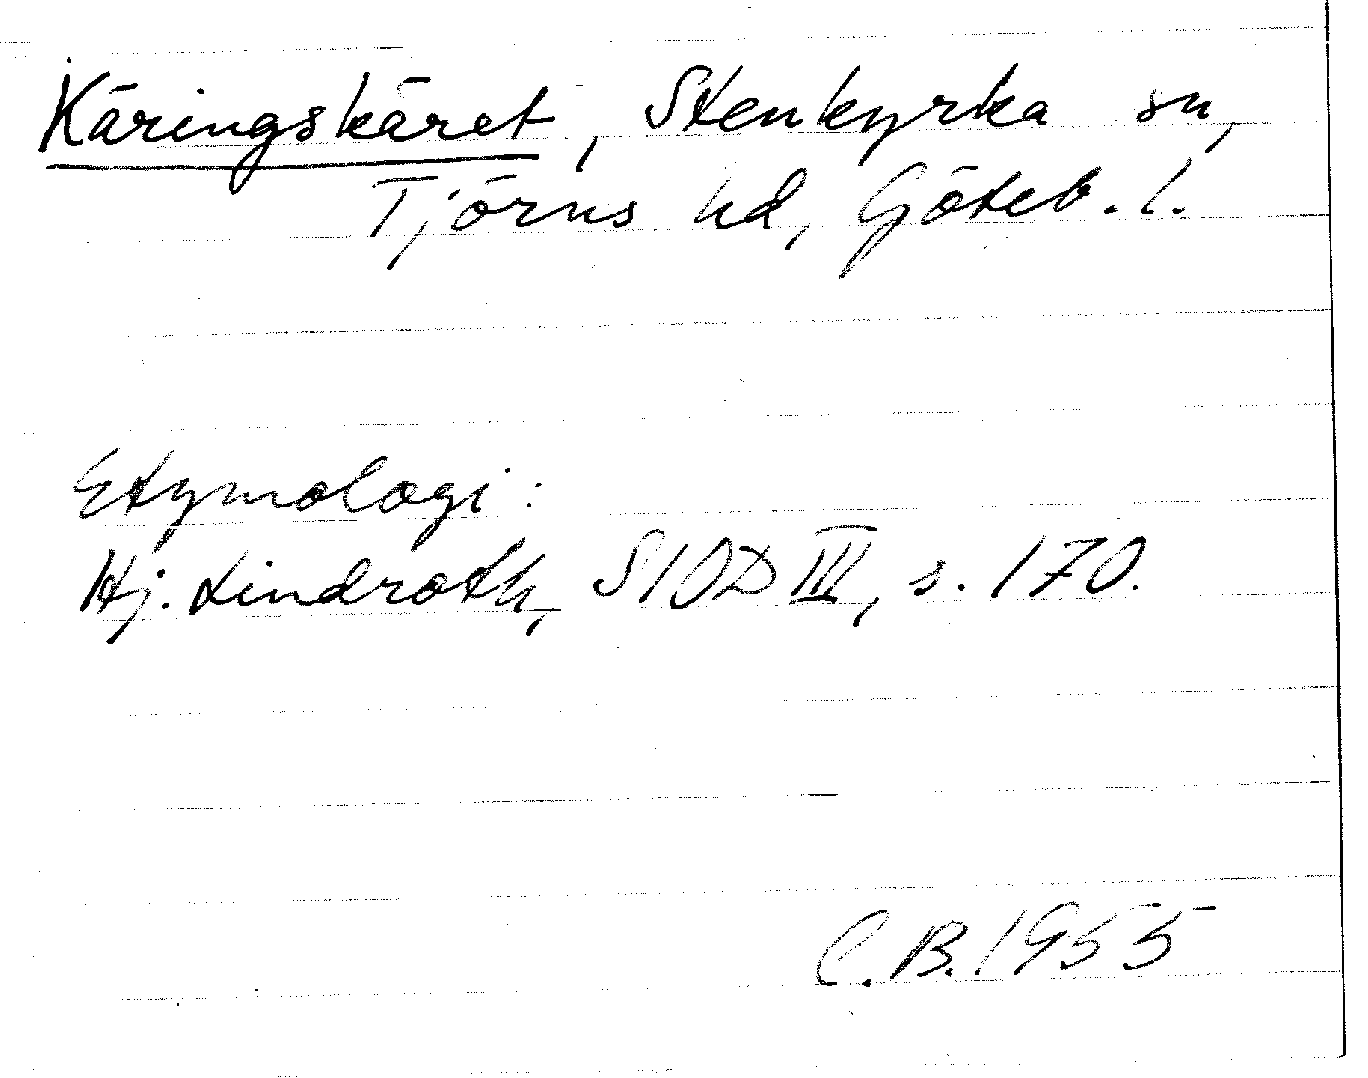 Käringskäret, Stenkyrka sn,
Tjörns hd, Göteb. l.
Etymologi:
Hj. Lindroth, SIOD III, s. 170.
C.B. 1955